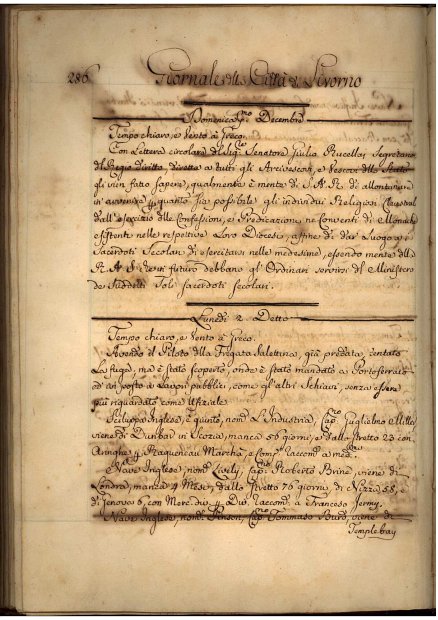 286 Giornale della Città di Livorno
Domenica P.mo Decembre
Tempo chiaro, e Vento a Greco.
Con Lettera circolare del Sig.r Senatore Giulio Rucellai Segretario
del Regio diritto, diretta a tutti gli Arcivescovi, e Vescovi dello Stato
gli vien fatto sapere, qualmente è mente di S. A. R. di allontanare
in avvenire quanto sia possibile gl'individui Religiosi Claustrali
dall'esercizio delle Confessioni, e Predicazione ne Conventi di Monache
esistenti nelle respettive Loro Diocesi, affine di dar Luogo a i
Sacerdoti Secolari di esercitarsi nelle medesime, essendo mente della
R. A. S. futuro debbano gl'Ordinari servirsi del Ministero
de Suddetti Soli sacerdoti secolari.
Lunedì 2. Detto
Tempo chiaro, e Vento a Greco.
Avendo il Piloto della Fregata Salettina, già predata, tentato
La fuga, ma è stato scoperto, onde è stato mandato a Portoferraio
ed ivi posto a Lavori pubblici, come gl'altri Schiavi, senza essere
più riguardato come Ufiziale.
Sciluppo Inglese, è quinto, nom.o L'Industria, Cap.o Guglielmo Mille
viene di Dunbar in Scozia, manca 56 giorni, e dallo stretto 23 con
Aringhe Raccom.o a med.mi
Nave Inglese, nom.a Lively, Cap.o Roberto Brine, viene di
Londra, manca 4 Mesi, dallo stretto 76 giorni, di Nizza 58, e
di Genova 6, con Merc. div. Raccom.o a Francesco Jermy.
Nave Inglese, nom.a Cap.o Tommaso viene di
Temple bay